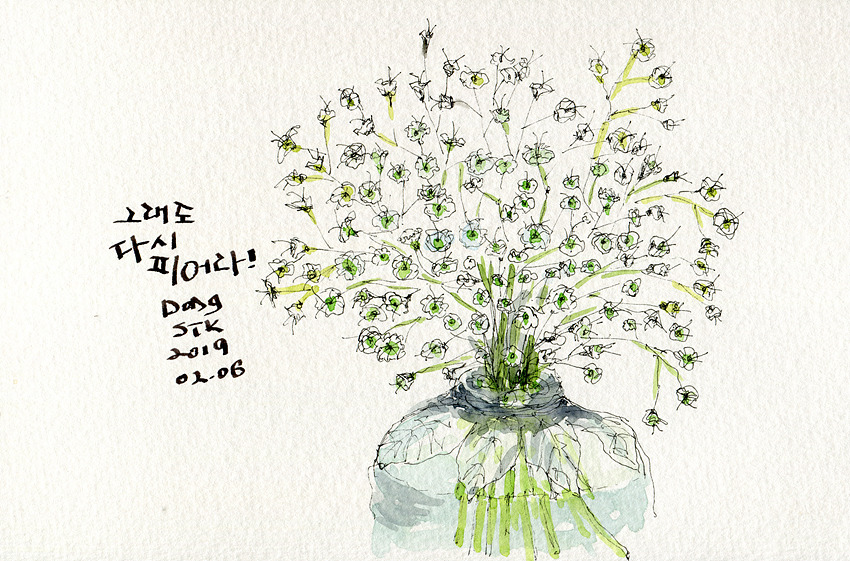 그래도
다시
피어라!
Dong
STK
2019
02.06